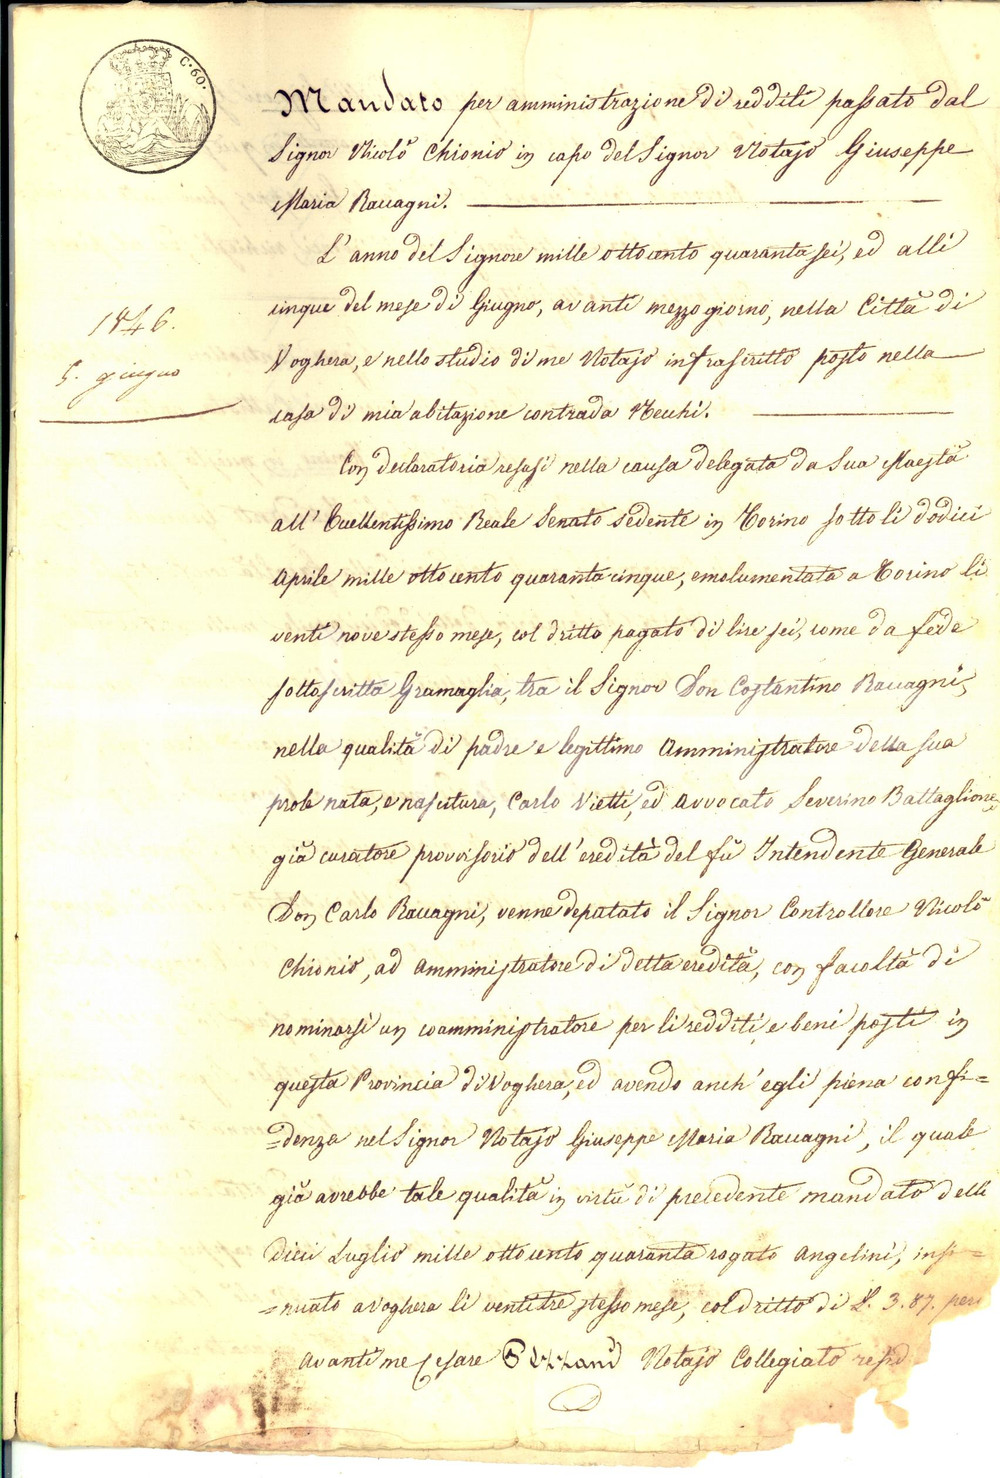 C. 60.
Mandato per amministrazione di redditi passato dal
Signor Nicolò Chionio in capo del Signor Notajo Giuseppe
Maria Ravagni.
L'anno del Signore mille ottocento quaranta sei, ed alli
cinque del mese di Giugno, avanti mezzo giorno, nella Città di
Voghera, e nello studio di me Notajo infrascritto posto nella
casa di mia abitazione contrada Necchi.
1846.
5. giugno
Con declaratoria resasi nella causa delegata da Sua Maestà
all'Eccellentissimo Reale Senato sedente in Torino sotto li dodici
Aprile mille ottocento quaranta cinque, emolumentata a Torino li
venti nove stesso mese, col dritto pagato di lire sei, come da fede
sottoscritta Gramaglia, tra il Signor Don Costantino Ravagni,
nella qualità di padre e legittimo Amministratore della sua
prole nata, e nascitura, Carlo Vietti, ed Avvocato Severino Battaglione,
già curatore provvisorio dell'eredità del fù Intendente Generale
Don Carlo Ravagni, venne deputato il Signor Controllore Nicolò
Chionio, ad Amministratore di detta eredità, con facoltà di
nominarsi un coamministratore per li redditi, e beni posti in
questa Provincia di Voghera, ed avendo anch'egli piena confi=
=denza nel Signor Notajo Giuseppe Maria Ravagni, il quale
già avrebbe tale qualità in virtù di precedente mandato delli
dieci Luglio mille ottocento quaranta rogato Angelini, insi=
=nuato a Voghera li ventitre stesso mese, col dritto di L. 3.87. per
Avanti me Cesare Notajo Collegiato resid